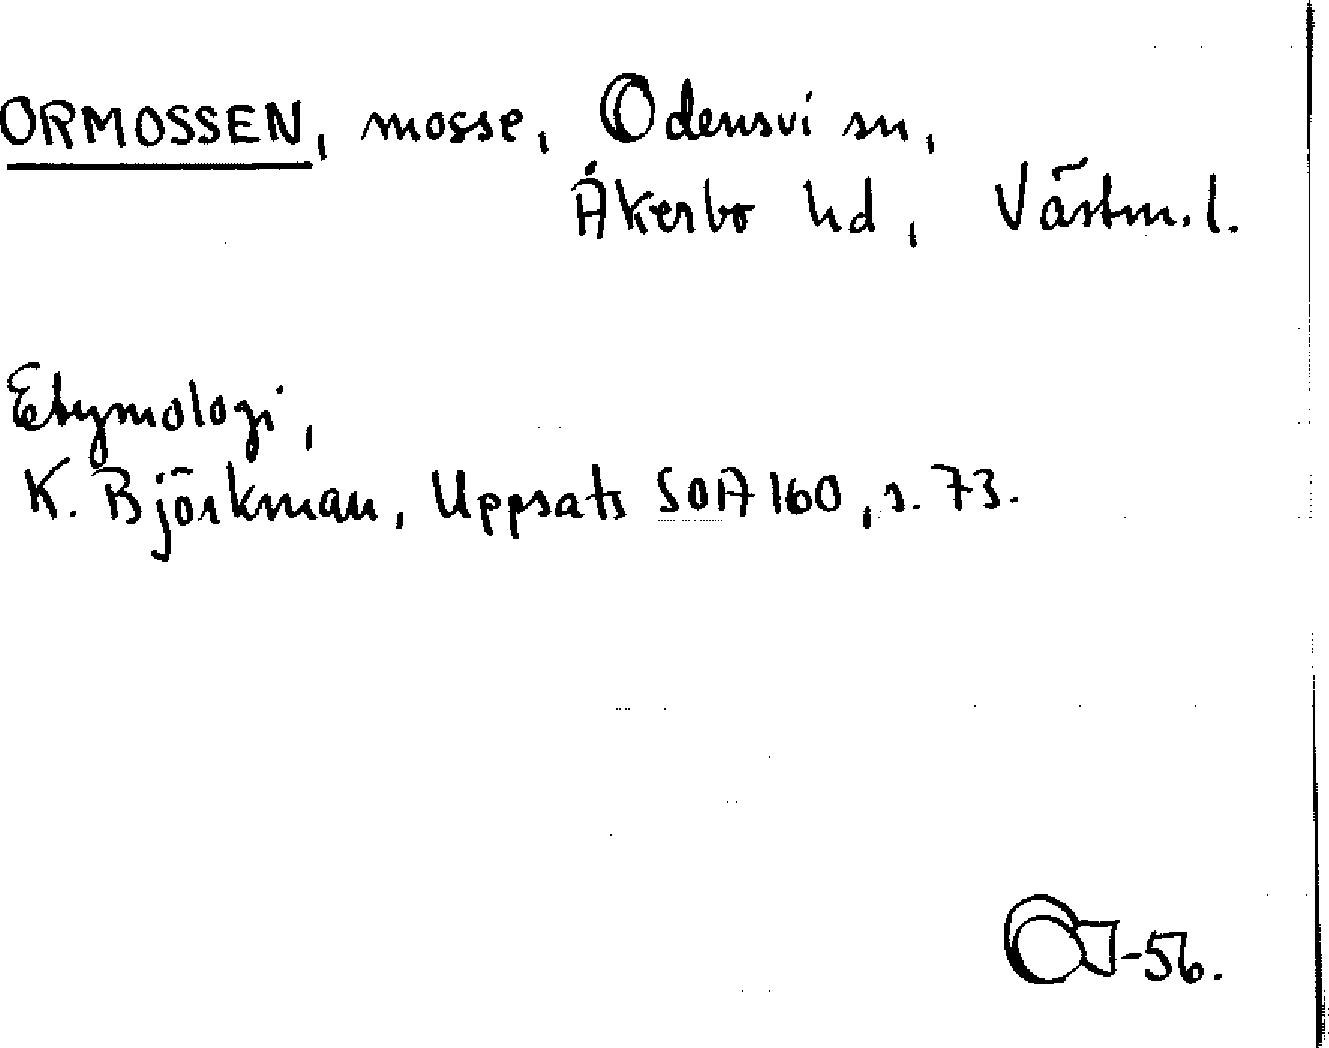 ORMOSSEN, mosse, Odensvi sn,
Åkerbo hd, Västm.l.
Etymologi,
K. Björkman, Uppsats SOA 160, s. 73.
-56.